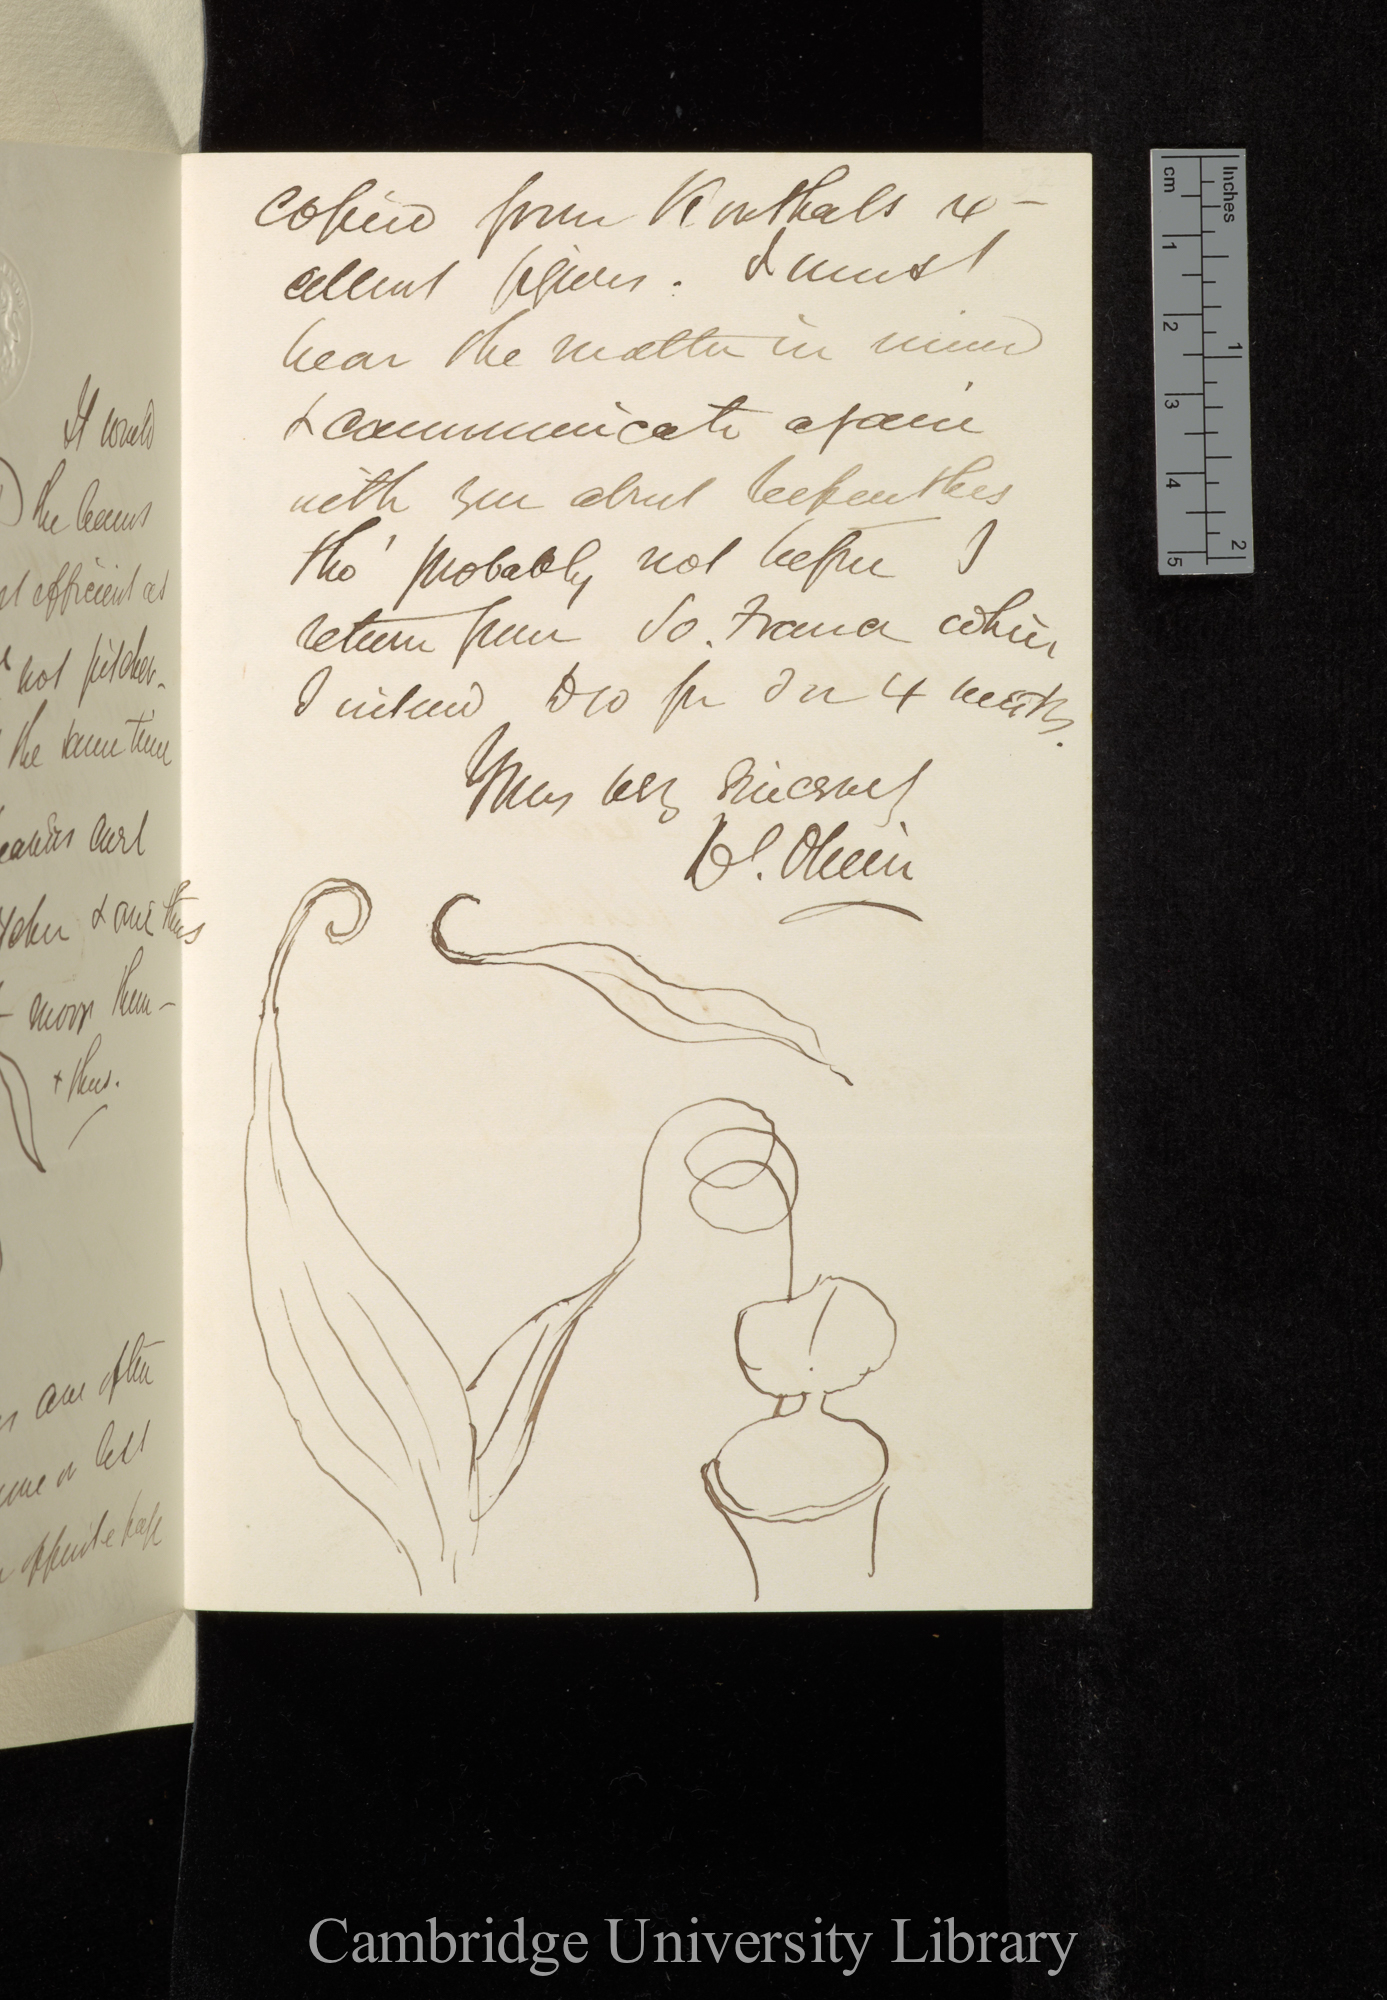 It would
the leaves
efficient as
not pitcher-
the same time
curl
& one thus
more them-
& thus.
are often
or less
opposite page
copied from Korthals ex-
cellent figures. I must
bear the matter in mind
& communicate again
with you about Nepenthes
tho' probably not before I
return from So. France whier
I intend to go for 3 or 4 weeks.
Yours very sincerely
D. Oliver
cm
1
2
3
4
5
Inches
1
2
Cambridge University Library